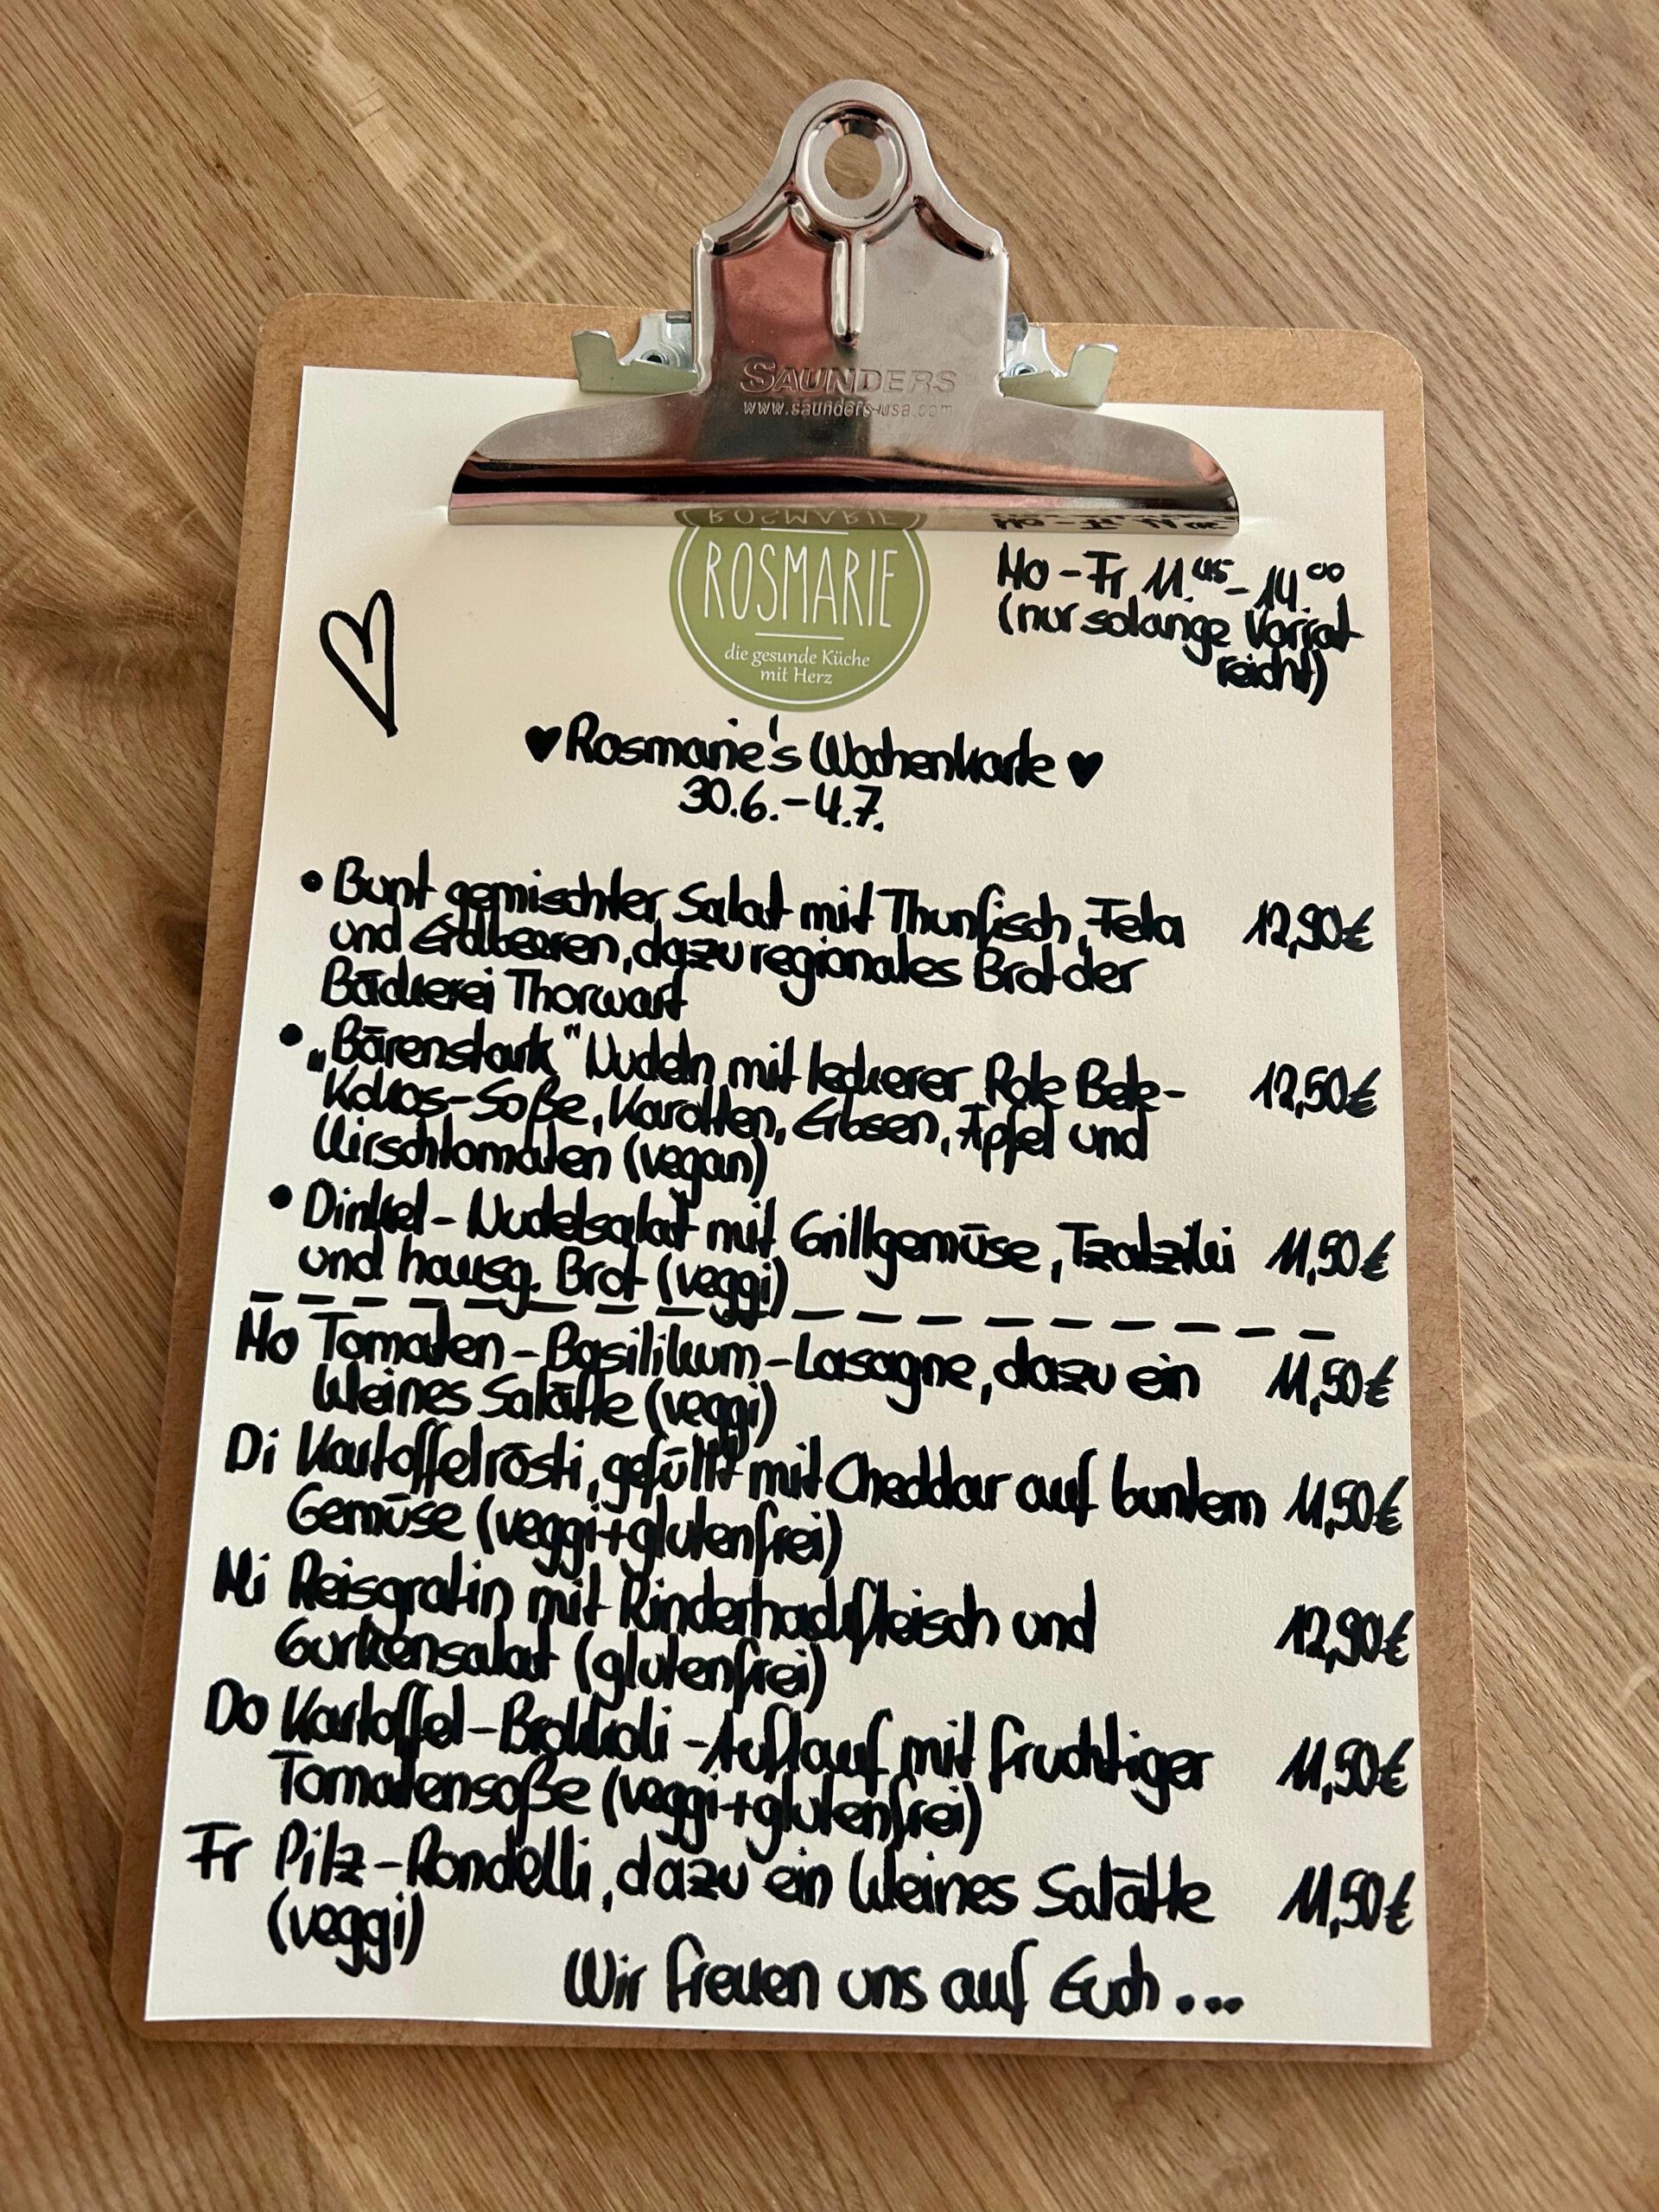 SAUNDERS
www.saunders-usa.com
ROSMARIE
die gesunde Küche
mit Herz
Mo-Fr 11.45-14.00
(nur solange Vorrat
reicht)
♥Rosmarie's Wochenkarte♥
30.6.-4.7.
• Bunt gemischter Salat mit Thunfisch, Feta 12,90€
und Erdbeeren, dazu regionales Brot der
Bäckerei Thorwart
• „Bärenstark" Nudeln mit leckerer Rote Bete- 12,50€
Kokos-Soße, Karotten, Erbsen, Äpfel und
Kirschtomaten (vegan)
• Dinkel-Nudelsalat mit Grillgemüse, Tzatziki 11,50€
und hausg. Brot (veggi)
Mo Tomaten-Basilikum-Lasagne, dazu ein 11,50€
kleines Salätle (veggi)
Di Kartoffelrösti, gefüllt mit Cheddar auf buntem 11,50€
Gemüse (veggi+glutenfrei)
Mi Reisgratin mit Rinderhackfleisch und 12,90€
Gurkensalat (glutenfrei)
Do Kartoffel-Brokkoli-Auflauf mit fruchtiger 11,50€
Tomatensoße (veggi+glutenfrei)
Fr Pilz-Rondelli, dazu ein kleines Salätle 11,50€
(veggi)
Wir freuen uns auf Euch...